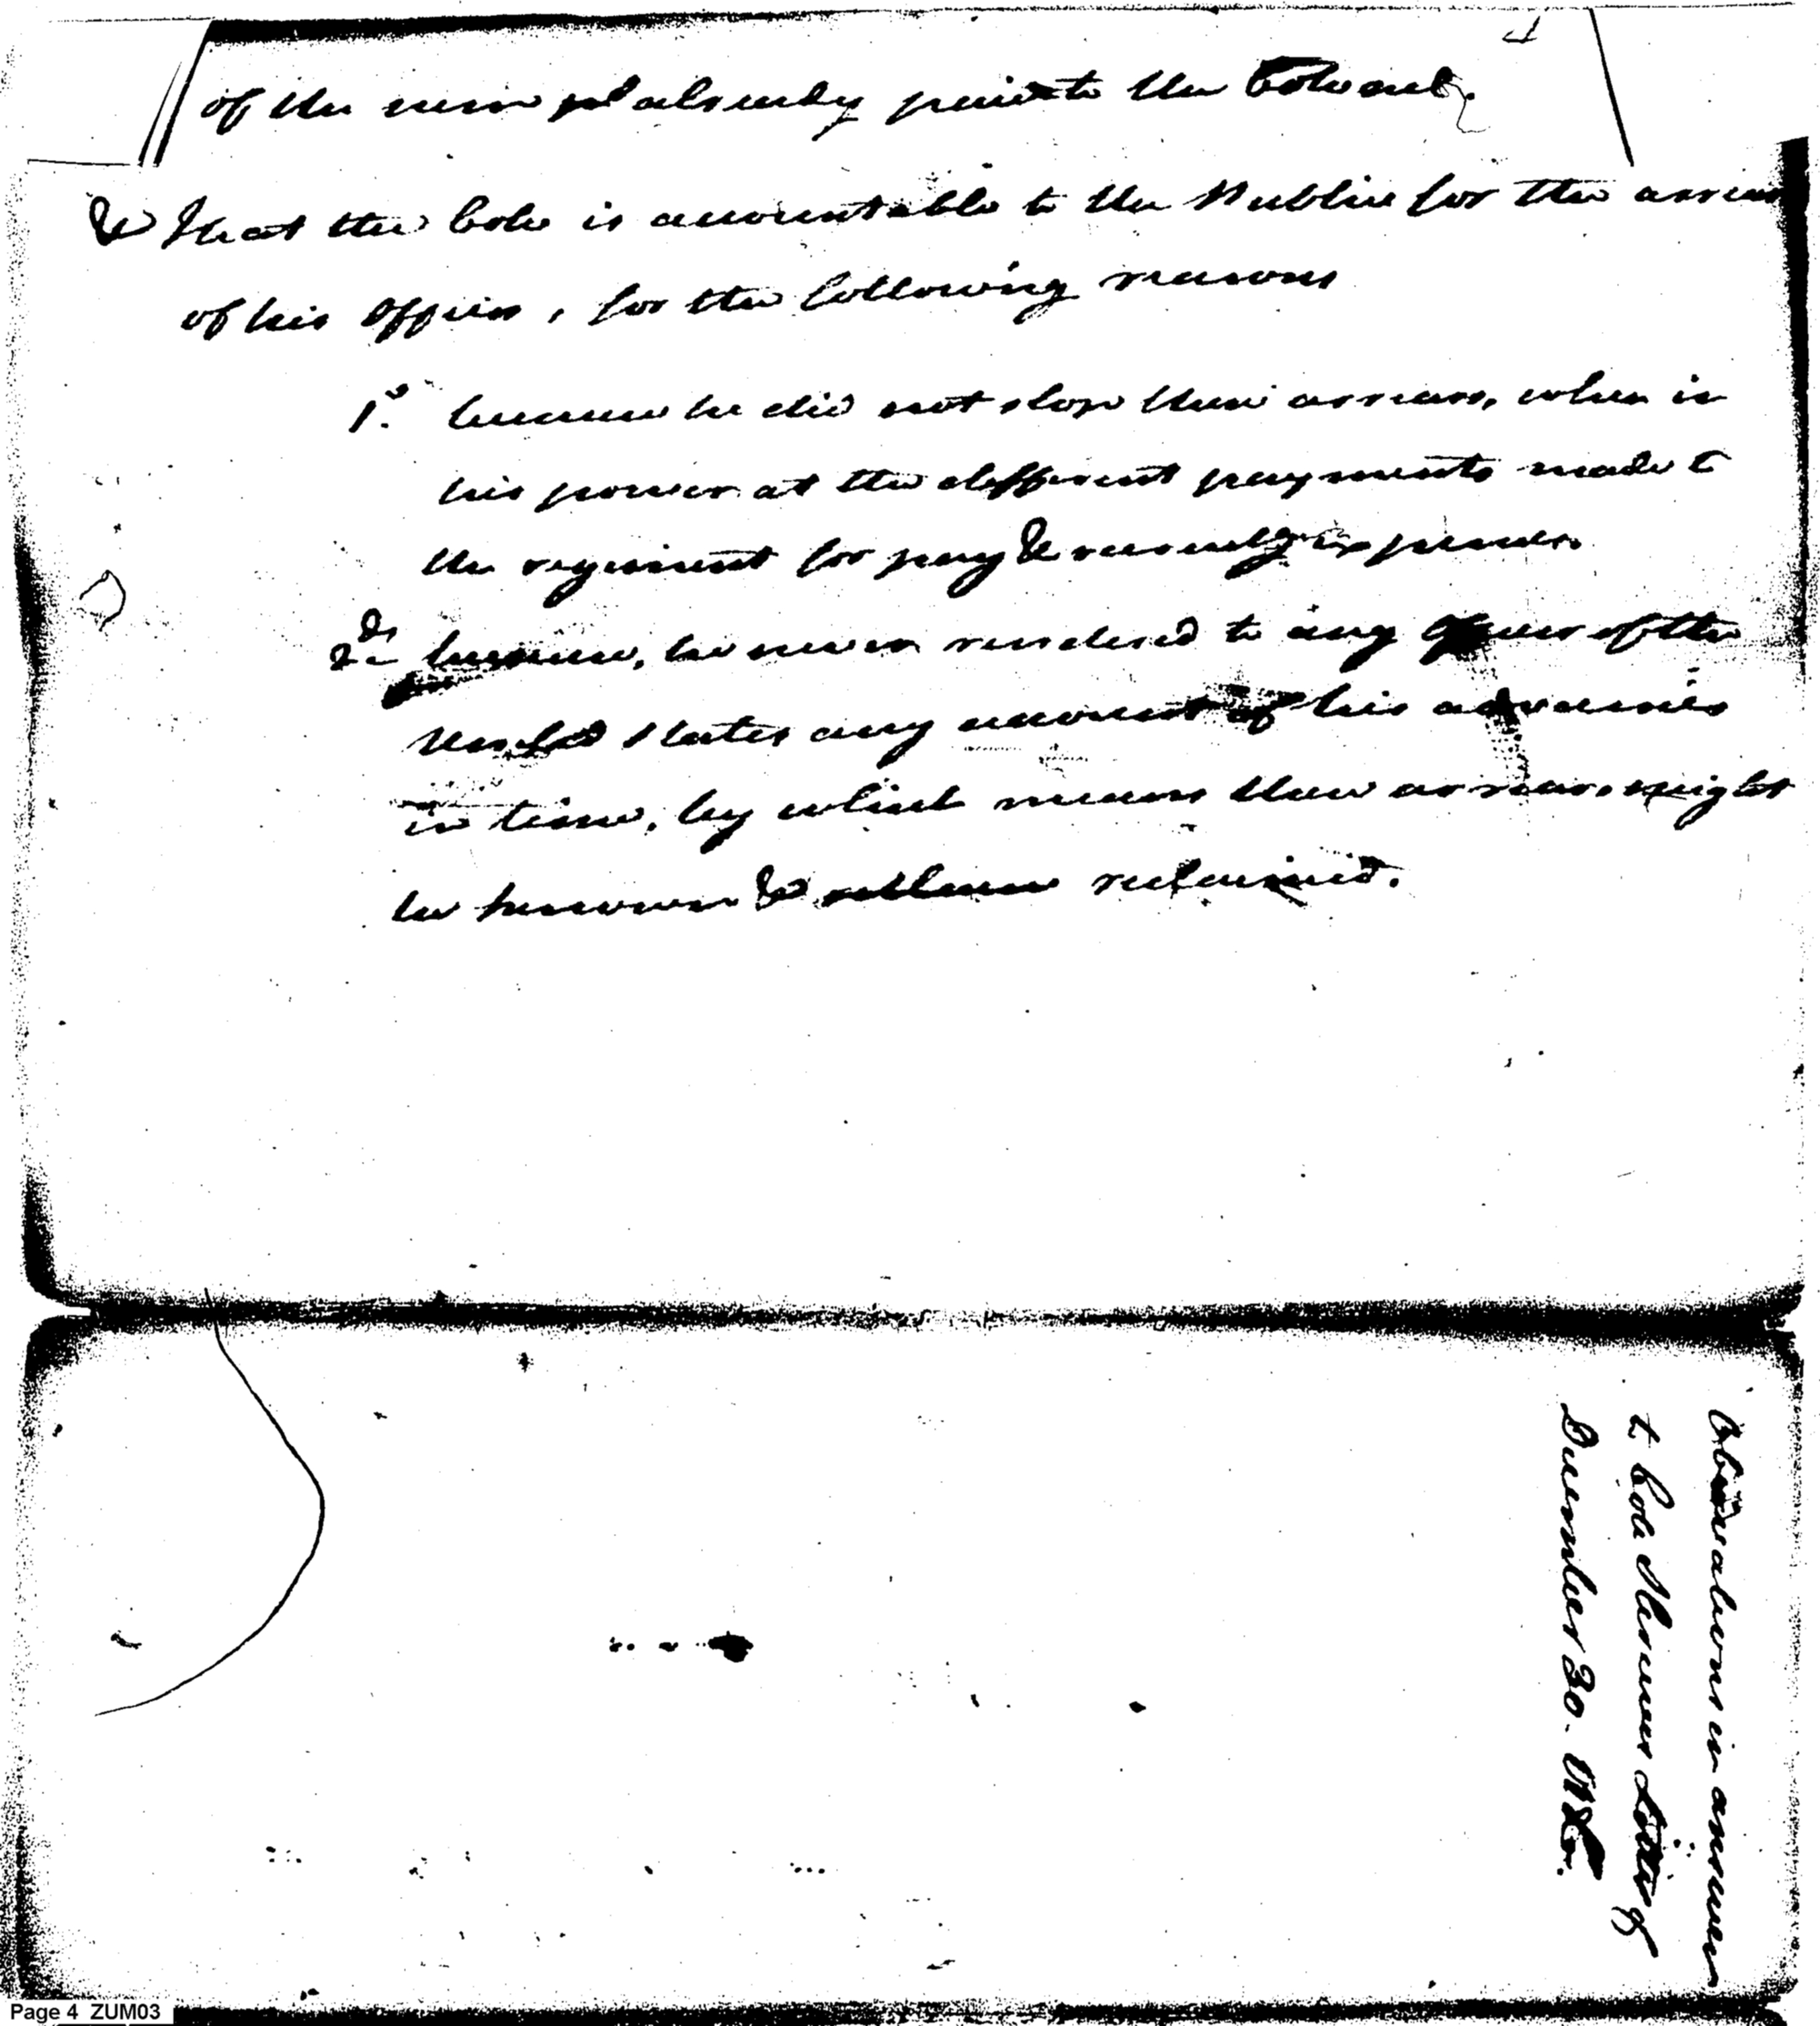 4
of the sum already paid to the Colonel.
& That the Colo is accountable to the Publie for the arrears
of his Officers, for the following reasons
1st. because he did not stop their arrears, when in
his power at the different payments made to
the regiment for pay & recruitg expenses.
2d because, he never rendered to any Officer of the
United States any account of his advances
in time, by which means their arrears might
be known & reclaimed.
Observations in answer
to Colo Letter of
December 30.
Page 4 ZUM03